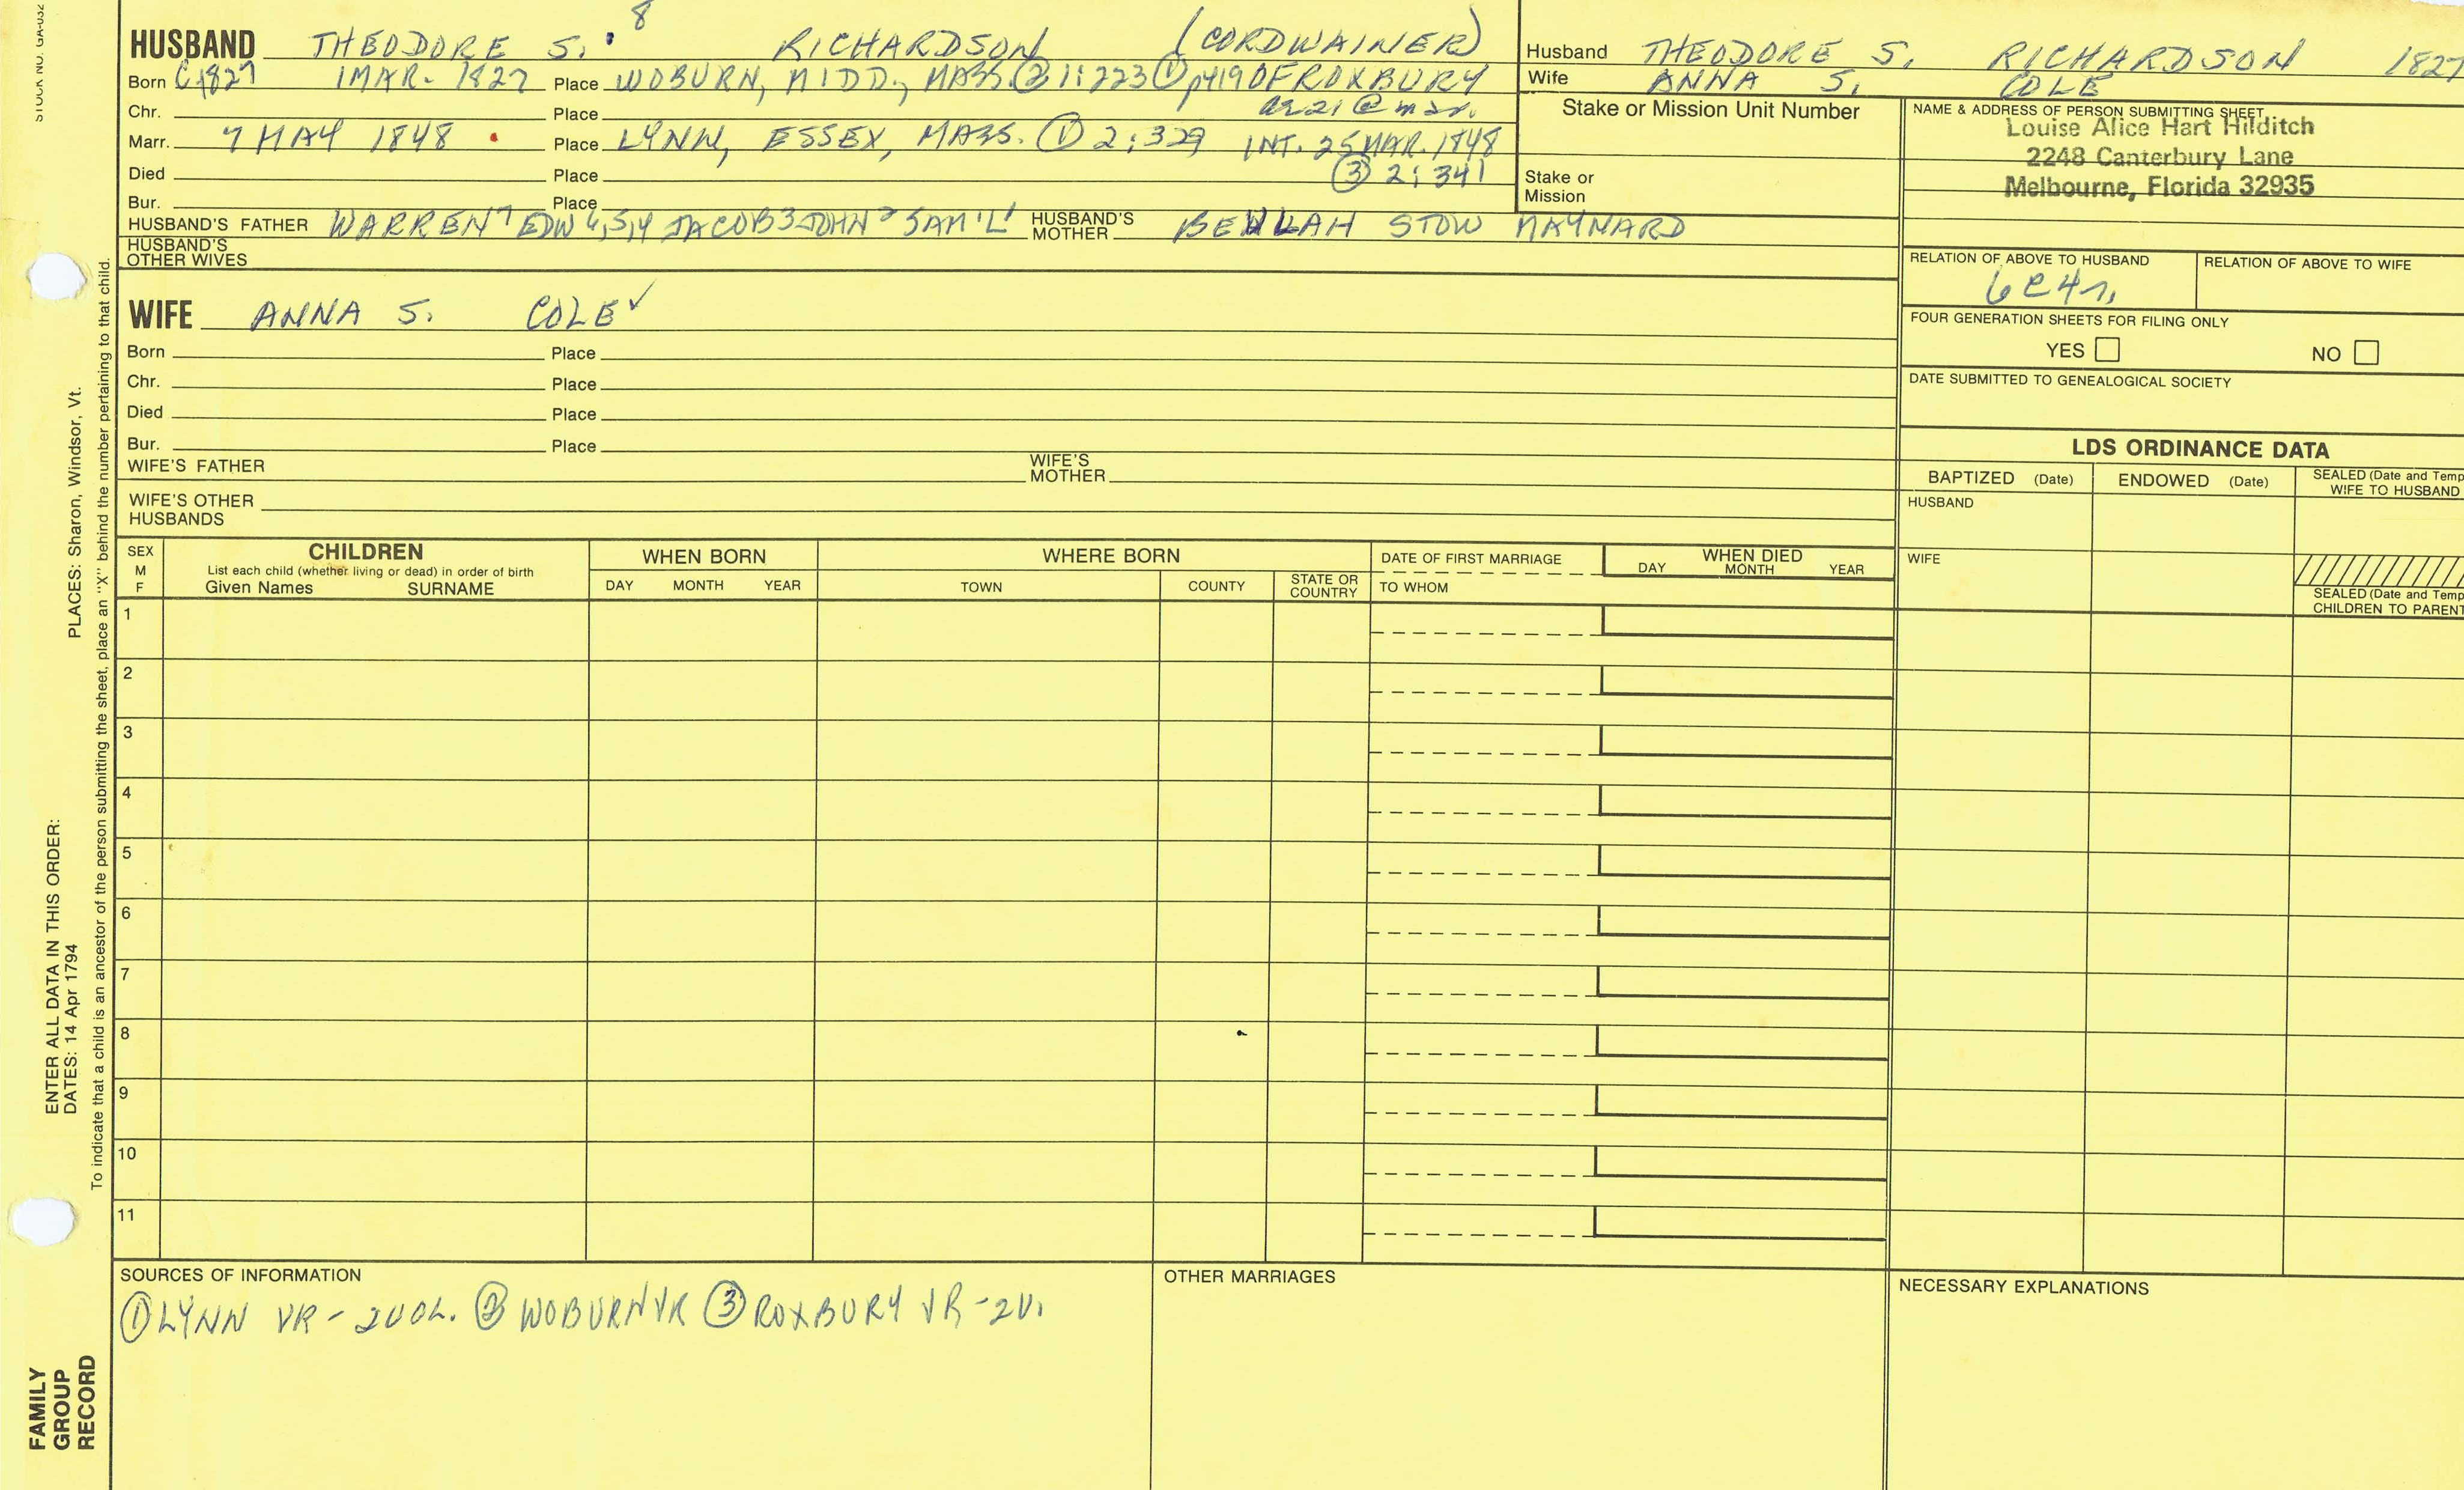 STOCK NO. GA-032
HUSBAND THEODORE S. 8 RICHARDSON (CORDWAINER)
Born C1827 1 MAR. 1827 Place WOBURN, MIDD., MASS. ② 1:223 ① p419 OF ROXBURY
Chr. Place ae 21 @ mar.
Marr. 7 MAY 1848 Place LYNN, ESSEX, MASS. ① 2:329 INT. 25 MAR. 1848
Died Place ③ 2:341
Bur. Place
HUSBAND'S FATHER WARREN7 EDW6,5,4 JACOB3 JOHN2 SAM'L1 HUSBAND'S MOTHER BEULAH STOW MAYNARD
HUSBAND'S OTHER WIVES
Husband THEODORE S. RICHARDSON 1827
Wife ANNA S. COLE
Stake or Mission Unit Number
Stake or Mission
NAME & ADDRESS OF PERSON SUBMITTING SHEET
Louise Alice Hart Hilditch
2248 Canterbury Lane
Melbourne, Florida 32935
RELATION OF ABOVE TO HUSBAND RELATION OF ABOVE TO WIFE
6C4r.
FOUR GENERATION SHEETS FOR FILING ONLY
YES NO
DATE SUBMITTED TO GENEALOGICAL SOCIETY
WIFE ANNA S. COLE ✓
Born Place
Chr. Place
Died Place
Bur. Place
WIFE'S FATHER WIFE'S MOTHER
WIFE'S OTHER HUSBANDS
LDS ORDINANCE DATA
BAPTIZED (Date) ENDOWED (Date) SEALED (Date and Temp
WIFE TO HUSBAND
HUSBAND
WIFE
SEALED (Date and Temp
CHILDREN TO PARENT
SEX M F
CHILDREN
List each child (whether living or dead) in order of birth
Given Names SURNAME
WHEN BORN
DAY MONTH YEAR
WHERE BORN
TOWN COUNTY STATE OR COUNTRY
DATE OF FIRST MARRIAGE
TO WHOM
WHEN DIED
DAY MONTH YEAR
1
2
3
4
5
6
7
8
9
10
11
SOURCES OF INFORMATION
① LYNN VR - 2 VOL. ② WOBURN VR ③ ROXBURY VR - 2V.
OTHER MARRIAGES
NECESSARY EXPLANATIONS
ENTER ALL DATA IN THIS ORDER:
DATES: 14 Apr 1794 PLACES: Sharon, Windsor, Vt.
To indicate that a child is an ancestor of the person submitting the sheet, place an "X" behind the number pertaining to that child.
FAMILY
GROUP
RECORD